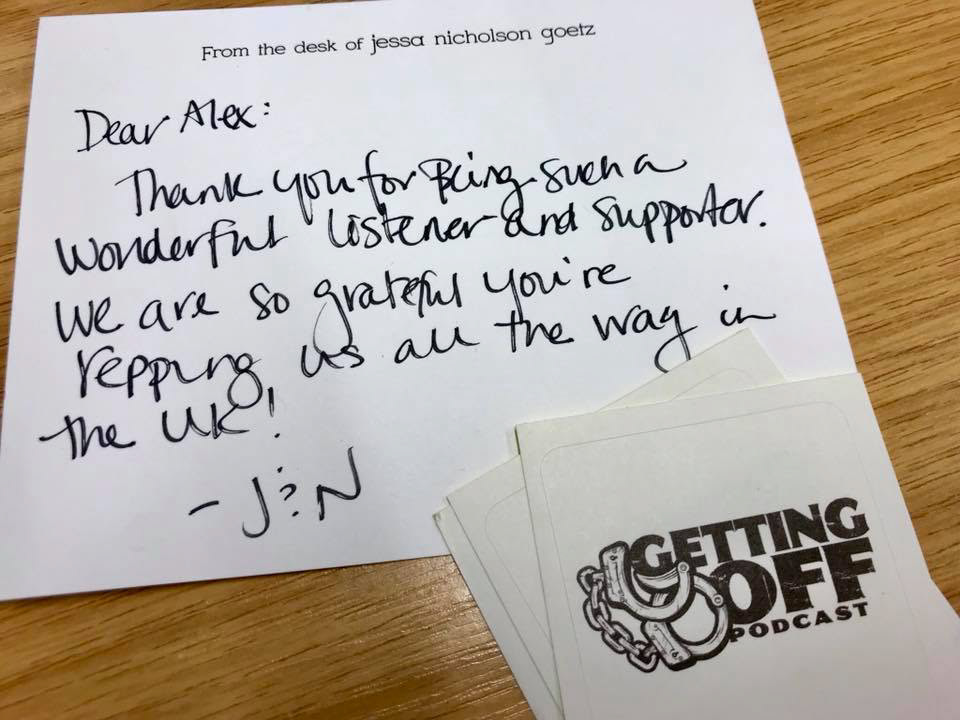 From the desk of jessa nicholson goetz
Dear Alex:
Thank you for Being such a
wonderful listener and supporter.
We are so grateful you're
repping us all the way in
the UK!
- J & N
GETTING
OFF
PODCAST